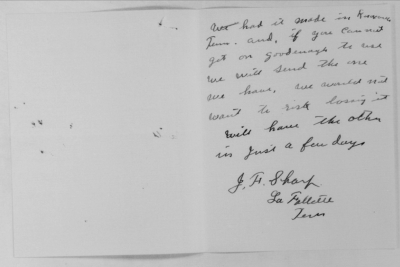 we had it made in
Tenn. and, if you cannot
get on good enough to use
we will send the one
we have, we would not
want to risk losing it
Will have the other
in Just a few days
J. H. Sharp
La Follette
Tenn